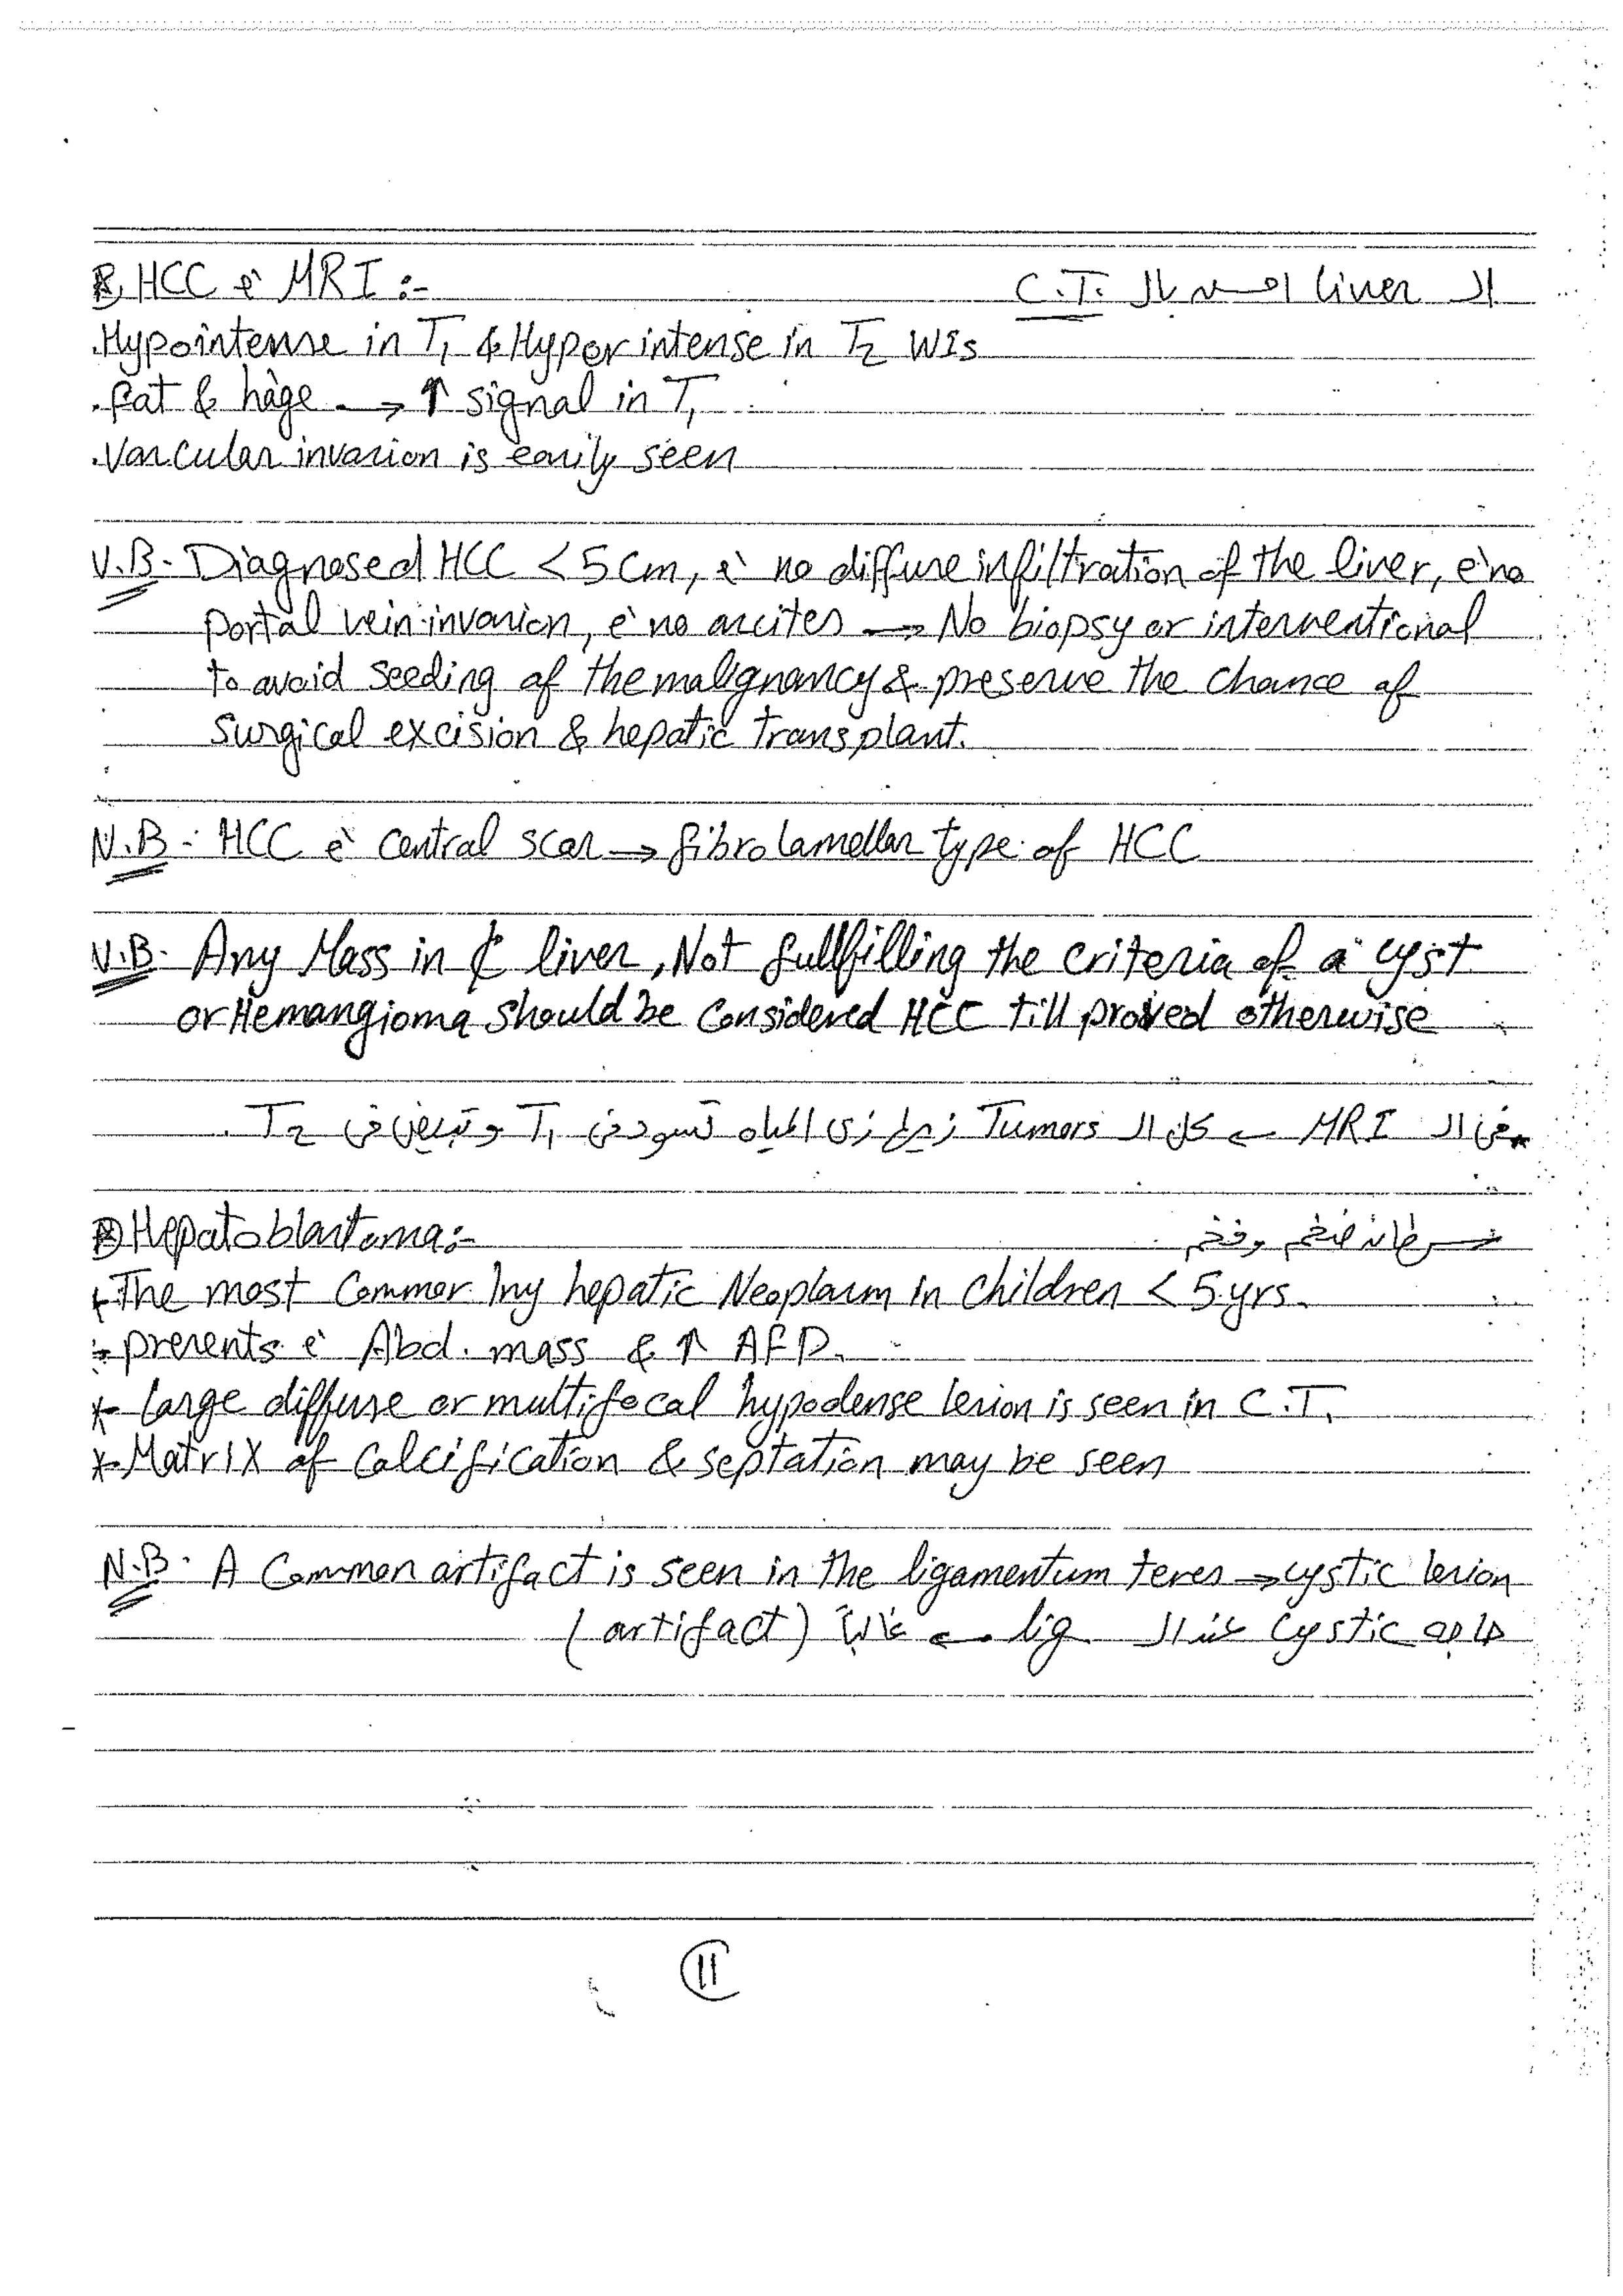 HCC è MRI :-
ال liver احسن بال C.T.
. Hypointense in T1 & Hyper intense in T2 WIs
. fat & hage → ↑ signal in T1
. Vascular invasion is easily seen
N.B. Diagnosed HCC < 5 Cm, è no diffuse infiltration of the liver, è no
portal vein invasion, è no ascites → No biopsy or interventional
to avoid seeding of the malignancy & preserve the chance of
Surgical excision & hepatic transplant.
N.B - HCC è central scar → fibrolamellar type of HCC
N.B. Any Mass in ₵ liver, Not fullfilling the criteria of a cyst
or Hemangioma should be considered HCC till proved otherwise
* في ال MRI ← كل ال Tumors زيها زى المياه تسود في T1 و تبيض في T2 .
Hepatoblastoma :-
سرطانه ضخم وفخم
The most Commer lny hepatic Neoplasm in children < 5 yrs.
presents è Abd. mass & ↑ AFP.
* Large diffuse or multifocal hypodense lesion is seen in C.T.
* Matrix of Calcification & septation may be seen
N.B. A Common artifact is seen in the ligamentum teres → cystic lesion
cystic عند ال lig. ← غالباً (artifact)
11